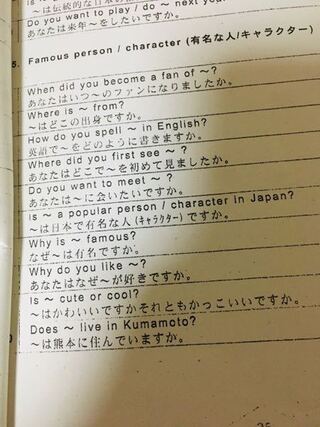 Is ~
~は伝統的な日本の
Do you want to play / do ~ next
あなたは来年~をしたいですか。
5. Famous person / character (有名な人/キャラクター)
When did you become a fan of ~?
あなたはいつ~のファンになりましたか。
Where is ~ from?
~はどこの出身ですか。
How do you spell ~ in English?
英語で~をどのように書きますか。
Where did you first see ~ ?
あなたはどこで~を初めて見ましたか。
Do you want to meet ~ ?
あなたは~に会いたいですか。
Is ~ a popular person / character in Japan?
~は日本で有名な人(キャラクター)ですか。
Why is ~ famous?
なぜ~は有名ですか。
Why do you like ~?
あなたはなぜ~が好きですか。
Is ~ cute or cool?
~はかわいいですかそれともかっこいいですか。
Does ~ live in Kumamoto?
~は熊本に住んでいますか。